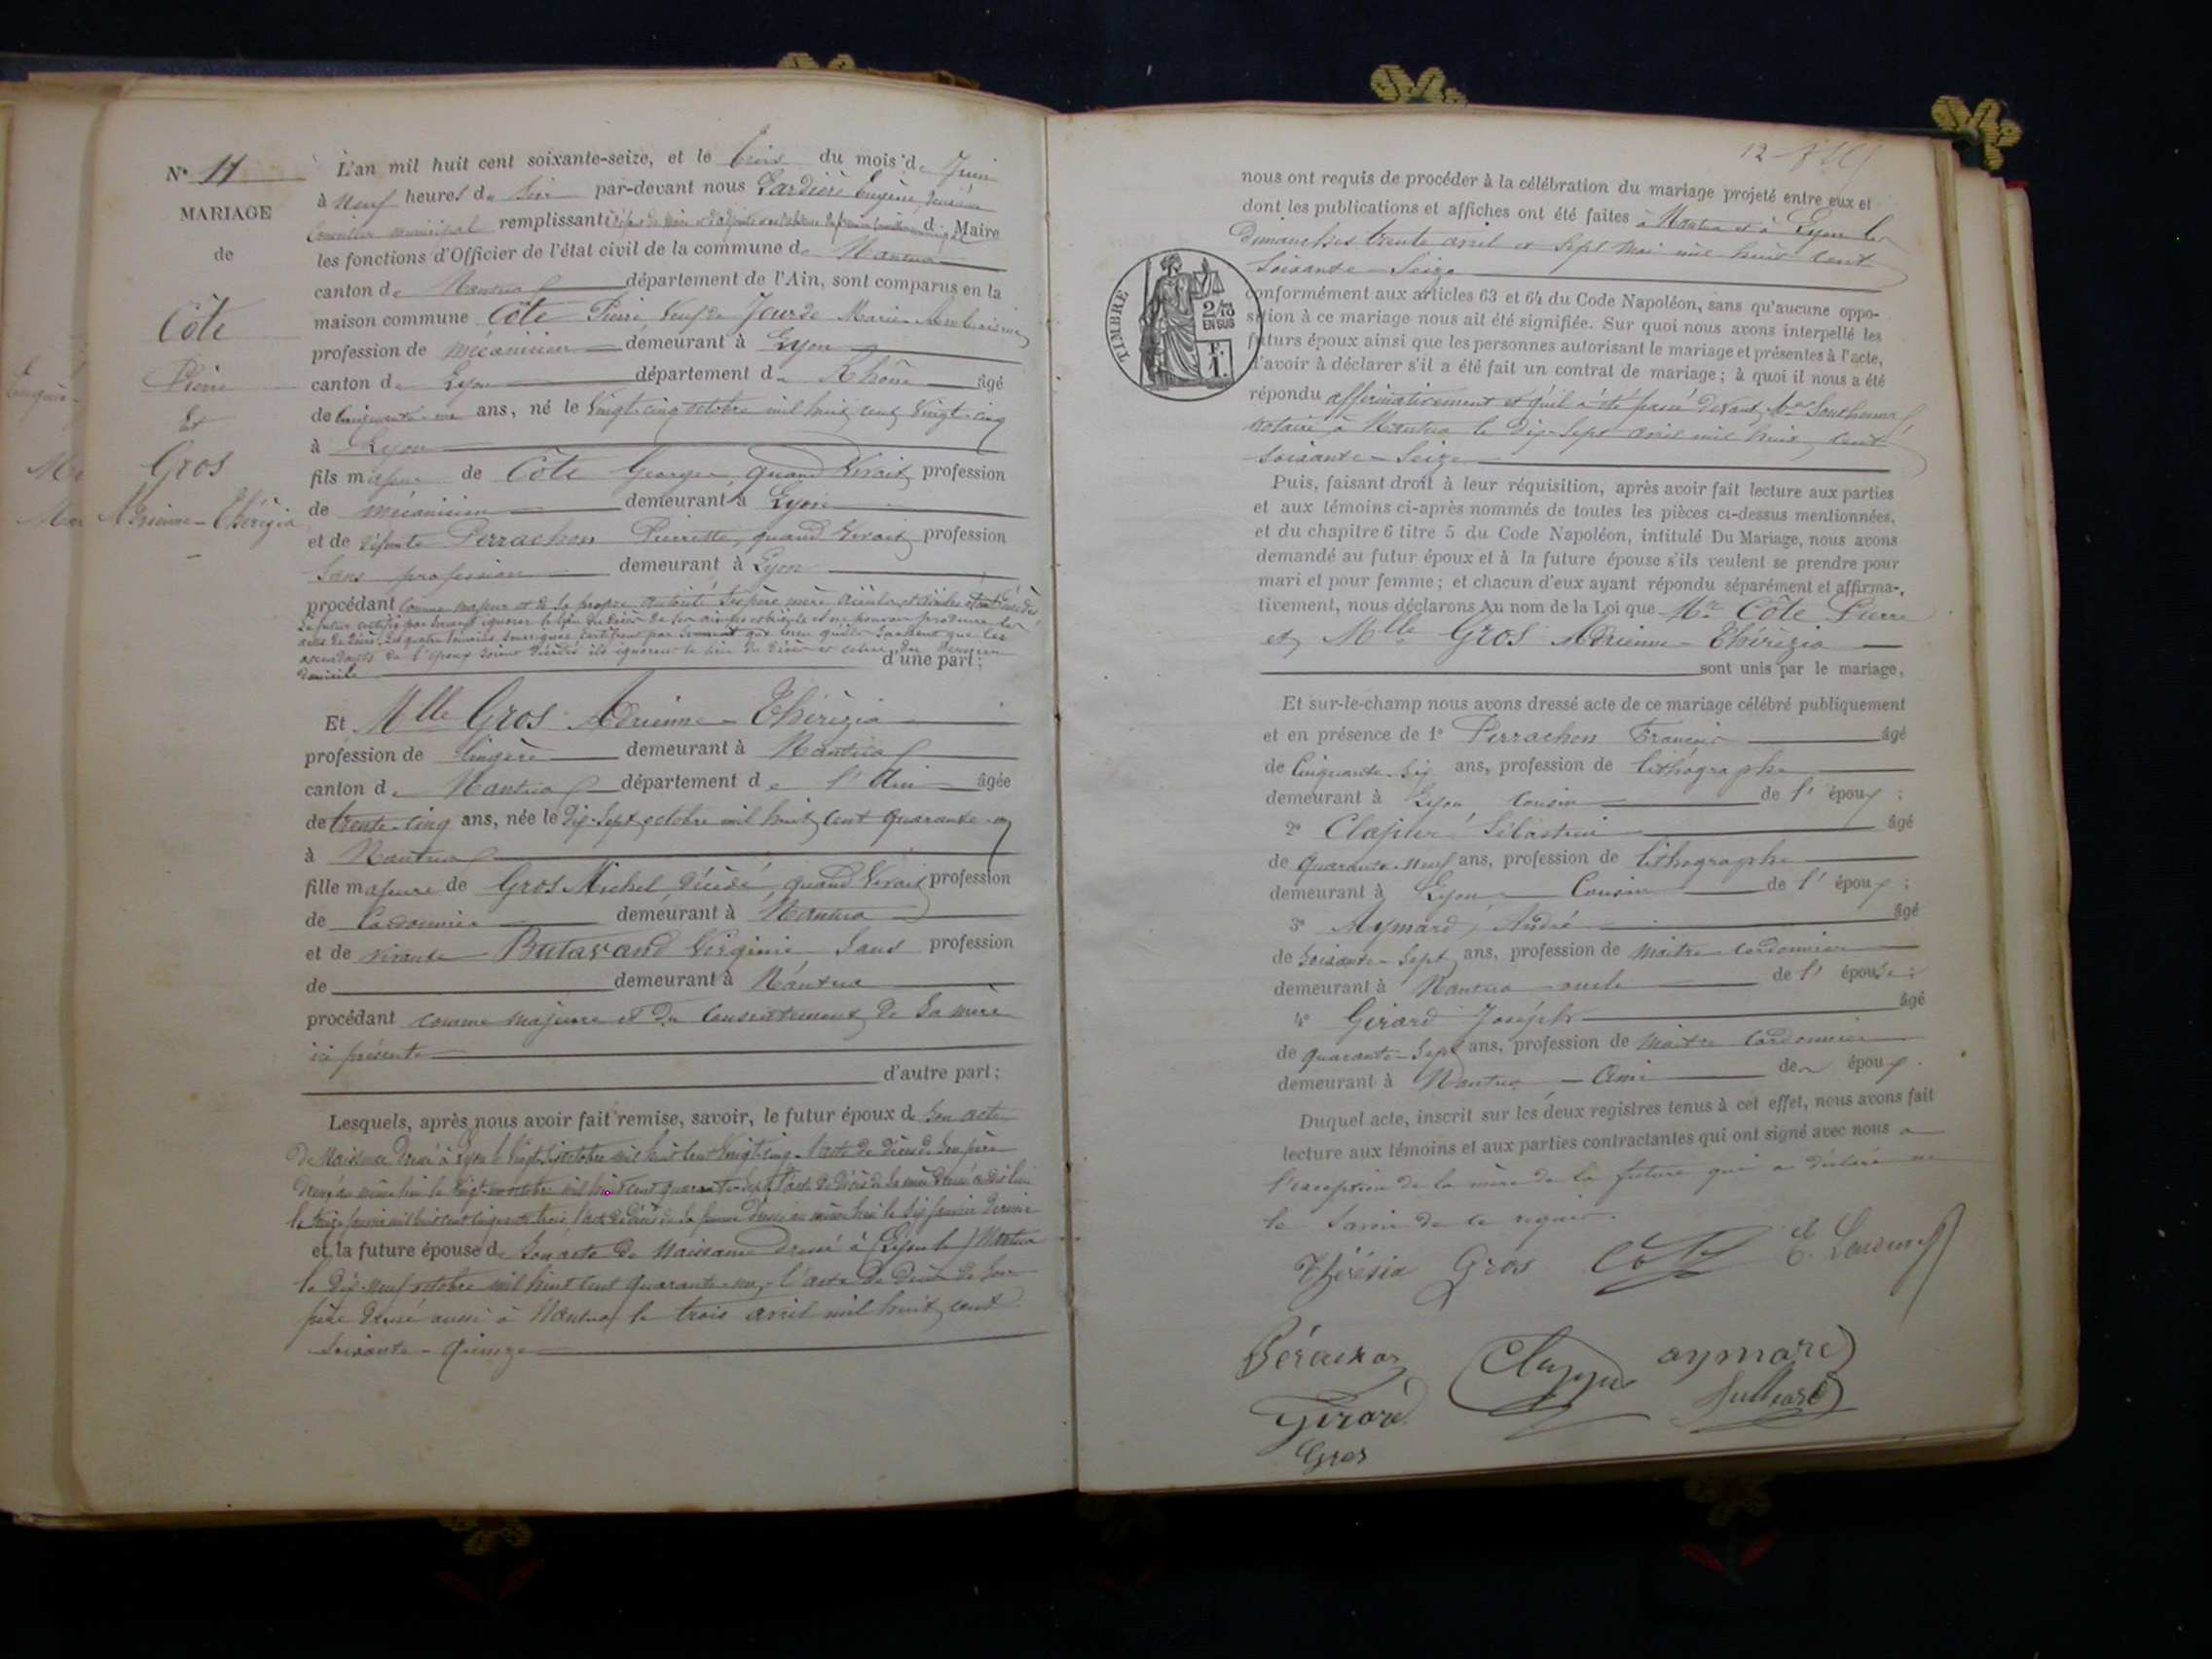 N° 11
MARIAGE
de
Côte
Pierre
Et
Gros
Adrienne-Thérèzia
L'an mil huit cent soixante-seize, et le trois du mois de Juin
à Neuf heures du Soir par-devant nous Lardière Eugène, deuxième
Conseiller municipal remplissant à défaut de Maire et d'adjoints d. Maire
les fonctions d'Officier de l'état civil de la commune de Nantua
canton de Nantua département de l'Ain, sont comparus en la
maison commune Côte Pierre Veuf de Jourde Marie
profession de mécanicien demeurant à Lyon
canton de Lyon département du Rhône âgé
de cinquante ans, né le Vingt-cinq octobre mil huit cent Vingt-cinq
à Lyon
fils majeur de Côte Georges, quand Vivait, profession
de mécanicien demeurant à Lyon
et de défunte Perrachon Pierrette, quand Vivait, profession
Sans profession demeurant à Lyon
procédant comme majeur et de sa propre autorité Ses père mère aïeuls et aïeules étant décédés
Le futur certifie par serment ignorer le lieu du décès de ses aïeuls et ne pouvoir produire les
actes de décès. Les quatre témoins soussignés certifient par Serment que bien qu'ils Sachent que les
ascendants de l'époux soient décédés ils ignorent le lieu du décès et celui du dernier
domicile d'une part;
Et Mlle Gros Adrienne-Thérèzia
profession de lingère demeurant à Nantua
canton de Nantua département de l'Ain âgée
de trente-cinq ans, née le Dix-Sept octobre mil huit cent quarante
à Nantua
fille majeure de Gros Michel, décédé, quand Vivait profession
de Cordonnier demeurant à Nantua
et de vivante Butavand Virginie Sans profession
de demeurant à Nantua
procédant comme majeure et du Consentement de Sa mère
ici présente
d'autre part;
Lesquels, après nous avoir fait remise, savoir, le futur époux de Son acte
de Naissance dressé à Lyon le Vingt-Six octobre mil huit cent Vingt-cinq - l'acte de décès de Son père
dressé au même lieu le Vingt octobre mil huit cent quarante-Sept l'acte de décès de Sa mère dressé au dit lieu
le Janvier mil huit cent cinquante trois l'acte de décès de Sa femme dressé au même lieu le Six Janvier dernier
et la future épouse de Son acte de Naissance dressé à (Lyon le) Nantua
le dix-neuf octobre mil huit cent quarante - l'acte de décès de Son
père dressé aussi à Nantua le trois avril mil huit cent
Soixante-Quinze
nous ont requis de procéder à la célébration du mariage projeté entre eux et
dont les publications et affiches ont été faites à Nantua et à Lyon les
Dimanches trente avril et Sept Mai mil huit cent
Soixante-Seize
TIMBRE
2/10
EN SUS
F.
1.
conformément aux articles 63 et 64 du Code Napoléon, sans qu'aucune oppo-
sition à ce mariage nous ait été signifiée. Sur quoi nous avons interpellé les
futurs époux ainsi que les personnes autorisant le mariage et présentes à l'acte,
d'avoir à déclarer s'il a été fait un contrat de mariage; à quoi il nous a été
répondu affirmativement et qu'il a été passé devant Me
notaire à Nantua le dix-Sept avril mil huit cent
Soixante-Seize
Puis, faisant droit à leur réquisition, après avoir fait lecture aux parties
et aux témoins ci-après nommés de toutes les pièces ci-dessus mentionnées,
et du chapitre 6 titre 5 du Code Napoléon, intitulé Du Mariage, nous avons
demandé au futur époux et à la future épouse s'ils veulent se prendre pour
mari et pour femme; et chacun d'eux ayant répondu séparément et affirma-
tivement, nous déclarons Au nom de la Loi que Mr Côte Pierre
et Mlle Gros Adrienne-Thérèzia
sont unis par le mariage,
Et sur-le-champ nous avons dressé acte de ce mariage célébré publiquement
et en présence de 1° Perrachon François âgé
de Cinquante-Six ans, profession de lithographe
demeurant à Lyon, Cousin de l'époux;
2° Clapier Sébastien âgé
de quarante-neuf ans, profession de lithographe
demeurant à Lyon Cousin de l'époux;
3° Aymard, André âgé
de Soixante-Sept ans, profession de Maître Cordonnier
demeurant à Nantua oncle de l'épouse;
4° Girard Joseph âgé
de quarante-Sept ans, profession de Maître Cordonnier
demeurant à Nantua - Ami des époux.
Duquel acte, inscrit sur les deux registres tenus à cet effet, nous avons fait
lecture aux témoins et aux parties contractantes qui ont signé avec nous à
l'exception de la mère de la future qui a déclaré ne
le Savoir de ce requise.
Thérésia Gros Côte
Pérachon aymard
Girard Julliard
Gros